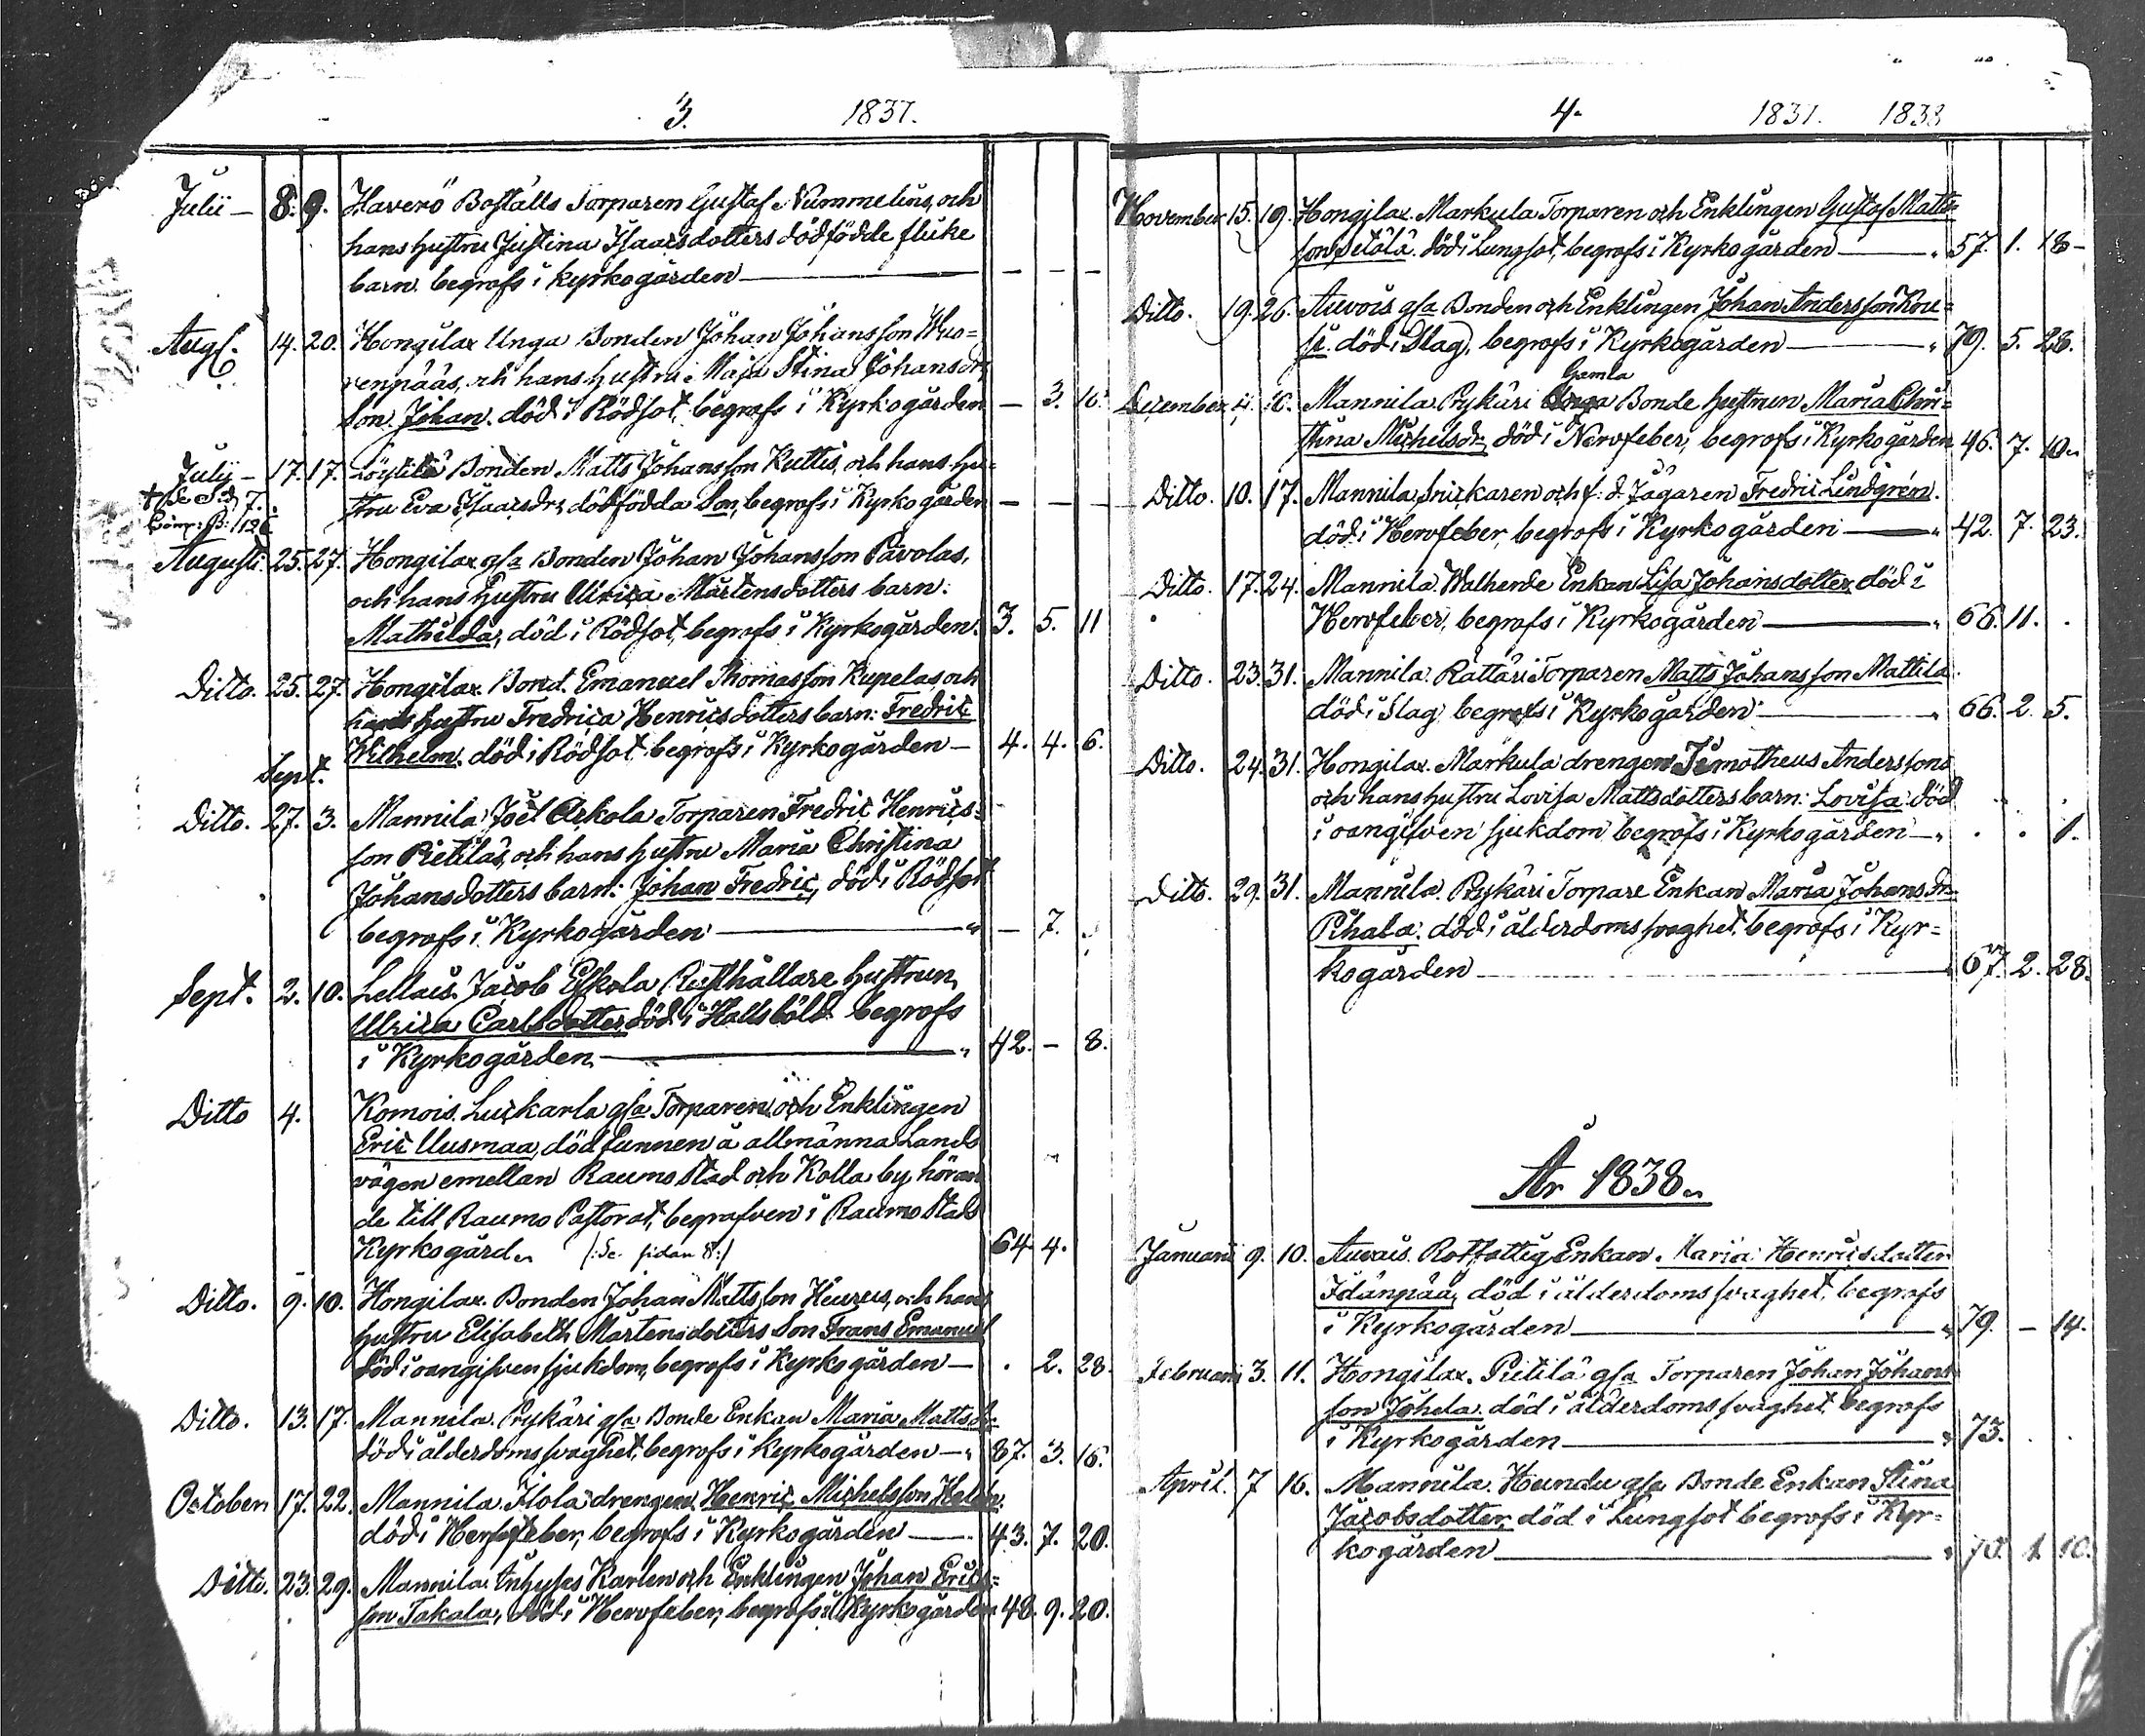 3. 1837.
Julii – 8. 9. Haverö Boställs Torparen Gustaf Nummelins, och
hans hustru Justina Isaacsdotters dödfödde flicke
barn begrofs i kyrkogården — — — —
Aug. 14. 20. Hongilax Unga Bonden Johan Johansson
renpääs, och hans hustru Maja Stina Johansdrs
Son Johan. död i Rödsot, begrofs i Kyrkogården — 3. 10.
Julij – 17. 17. Bonden Matts Johansson Kuttis, och hans hu=
stru Eva Isaacsdrs dödfödda Son, begrofs i Kyrkogården — — —
Augusti. 25. 27. Hongilax gla Bonden Johan Johansson Pävolas,
och hans hustru Ulrica Mårtensdotters barn:
Mathilda, död i Rödsot, begrofs i Kyrkogården. 3. 5. 11
Ditto. 25. 27. Hongilax. Bond. Emanuel Thomasson Kupelas, och
hans hustru Fredrica Henricsdotters barn: Fredric
Wilhelm. död i Rödsot begrofs i Kyrkogården – 4. 4. 6.
Sept.
Ditto. 27. 3. Mannila Joel Arkola Torparen Fredric Henrics=
son Pietiläs, och hans hustru Maria Christina
Johansdotters barn: Johan Fredric, död i Rödsot
begrofs i Kyrkogården — „ — 7.
Sept. 2. 10. Lellais. Jacob Eskola Rusthållare hustrun,
Ulrica Carlsdotter död i Halsböld begrofs
i Kyrkogården — „ 42. – 8.
Ditto 4. Komois. Luckarla gla Torparen och Enklingen
Eric Uusmaa, död funnen å allmänna Lands
vägen emellan Raumo Stad och Kolla by höran
de till Raumo Pastorat, begrafven i Raumo Stads
Kyrkogård. /:Se sidan 8:/ 64. 4.
Ditto. 9. 10. Hongilax. Bonden Johan Mattsson Heurus, och hans
hustru Elisabeth Mårtensdotters Son Frans Emanuel
död i oangifven sjukdom, begrofs i Kyrkogården – . 2. 28.
Ditto. 13. 17. Mannila Prykäri gla Bonde Enkan Maria Mattsdr
död i ålderdomssvaghet, begrofs i kyrkogården – „ 87. 3. 16.
October 17. 22. Mannila Ilola drengen Henric Michelsson
död i Nervfeber, begrofs i Kyrkogården — 43. 7. 20.
Ditto. 23. 29. Mannila Inhyses Karlen och Enklingen Johan Erics=
son Takala, död i Nervfeber, begrofs i Kyrkogården 48. 9. 20.
4. 1837. 1838
November 15. 19. Hongilax. Markula Torparen och Enklingen Gustaf Matts=
son död i Lungsot, begrofs i Kyrkogården — „ 57. 1. 18–
Ditto. 19. 26. Auvois gla Bonden och Enklingen Johan Andersson Kou=
si. död i Slag, begrofs i Kyrkogården — „ 79. 5. 28.
Gamla
December 4. 10. Mannila Prykäri Unga Bonde hustrun Maria Chri=
stina Michelsdr, död i Nervfeber, begrofs i Kyrkogården 46. 7. 10.
Ditto. 10. 17. Mannila, snickaren och f: d. Jägaren Fredric Lindgrén.
död i Nervfeber, begrofs i Kyrkogården — „ 42. 7. 23.
Ditto. 17. 24. Mannila Walhende Enkan Lisa Johansdotter, död i
Nervfeber, begrofs i Kyrkogården — „ 66. 11. .
Ditto. 23. 31. Mannila. Rättäri Torparen Matts Johansson Mattila
död i Slag, begrofs i Kyrkogården — „ 66. 2. 5.
Ditto. 24. 31. Hongilax. Markula drengen Timotheus Anderssons
och hans hustru Lovisa Mattsdotters barn: Lovisa död
i oangifven sjukdom begrofs i Kyrkogården – „ . . 1.
Ditto. 29. 31. Mannila. Prykäri Torpare Enkan Maria Johansdr
Pihala. död i ålderdomssvaghet, begrofs i Kyr=
kogården — 67. 2. 28.
År 1838.
Januarii 9. 10. Auvais. Rotfattig Enkan Maria Henricsdotter
Idänpää, död i ålderdomssvaghet, begrofs
i Kyrkogården — „ 79. – 14.
Februarii 3. 11. Hongilax. Pietilä gla Torparen Johan Johans
son Johela. död i ålderdomssvaghet, begrofs
i Kyrkogården — „ 73. . .
April. 7 16. Mannila. Hundu gla Bonde Enkan Stina
Jacobsdotter, död i Lungsot begrofs i Kyr=
kogården — „ 70. 1. 10.